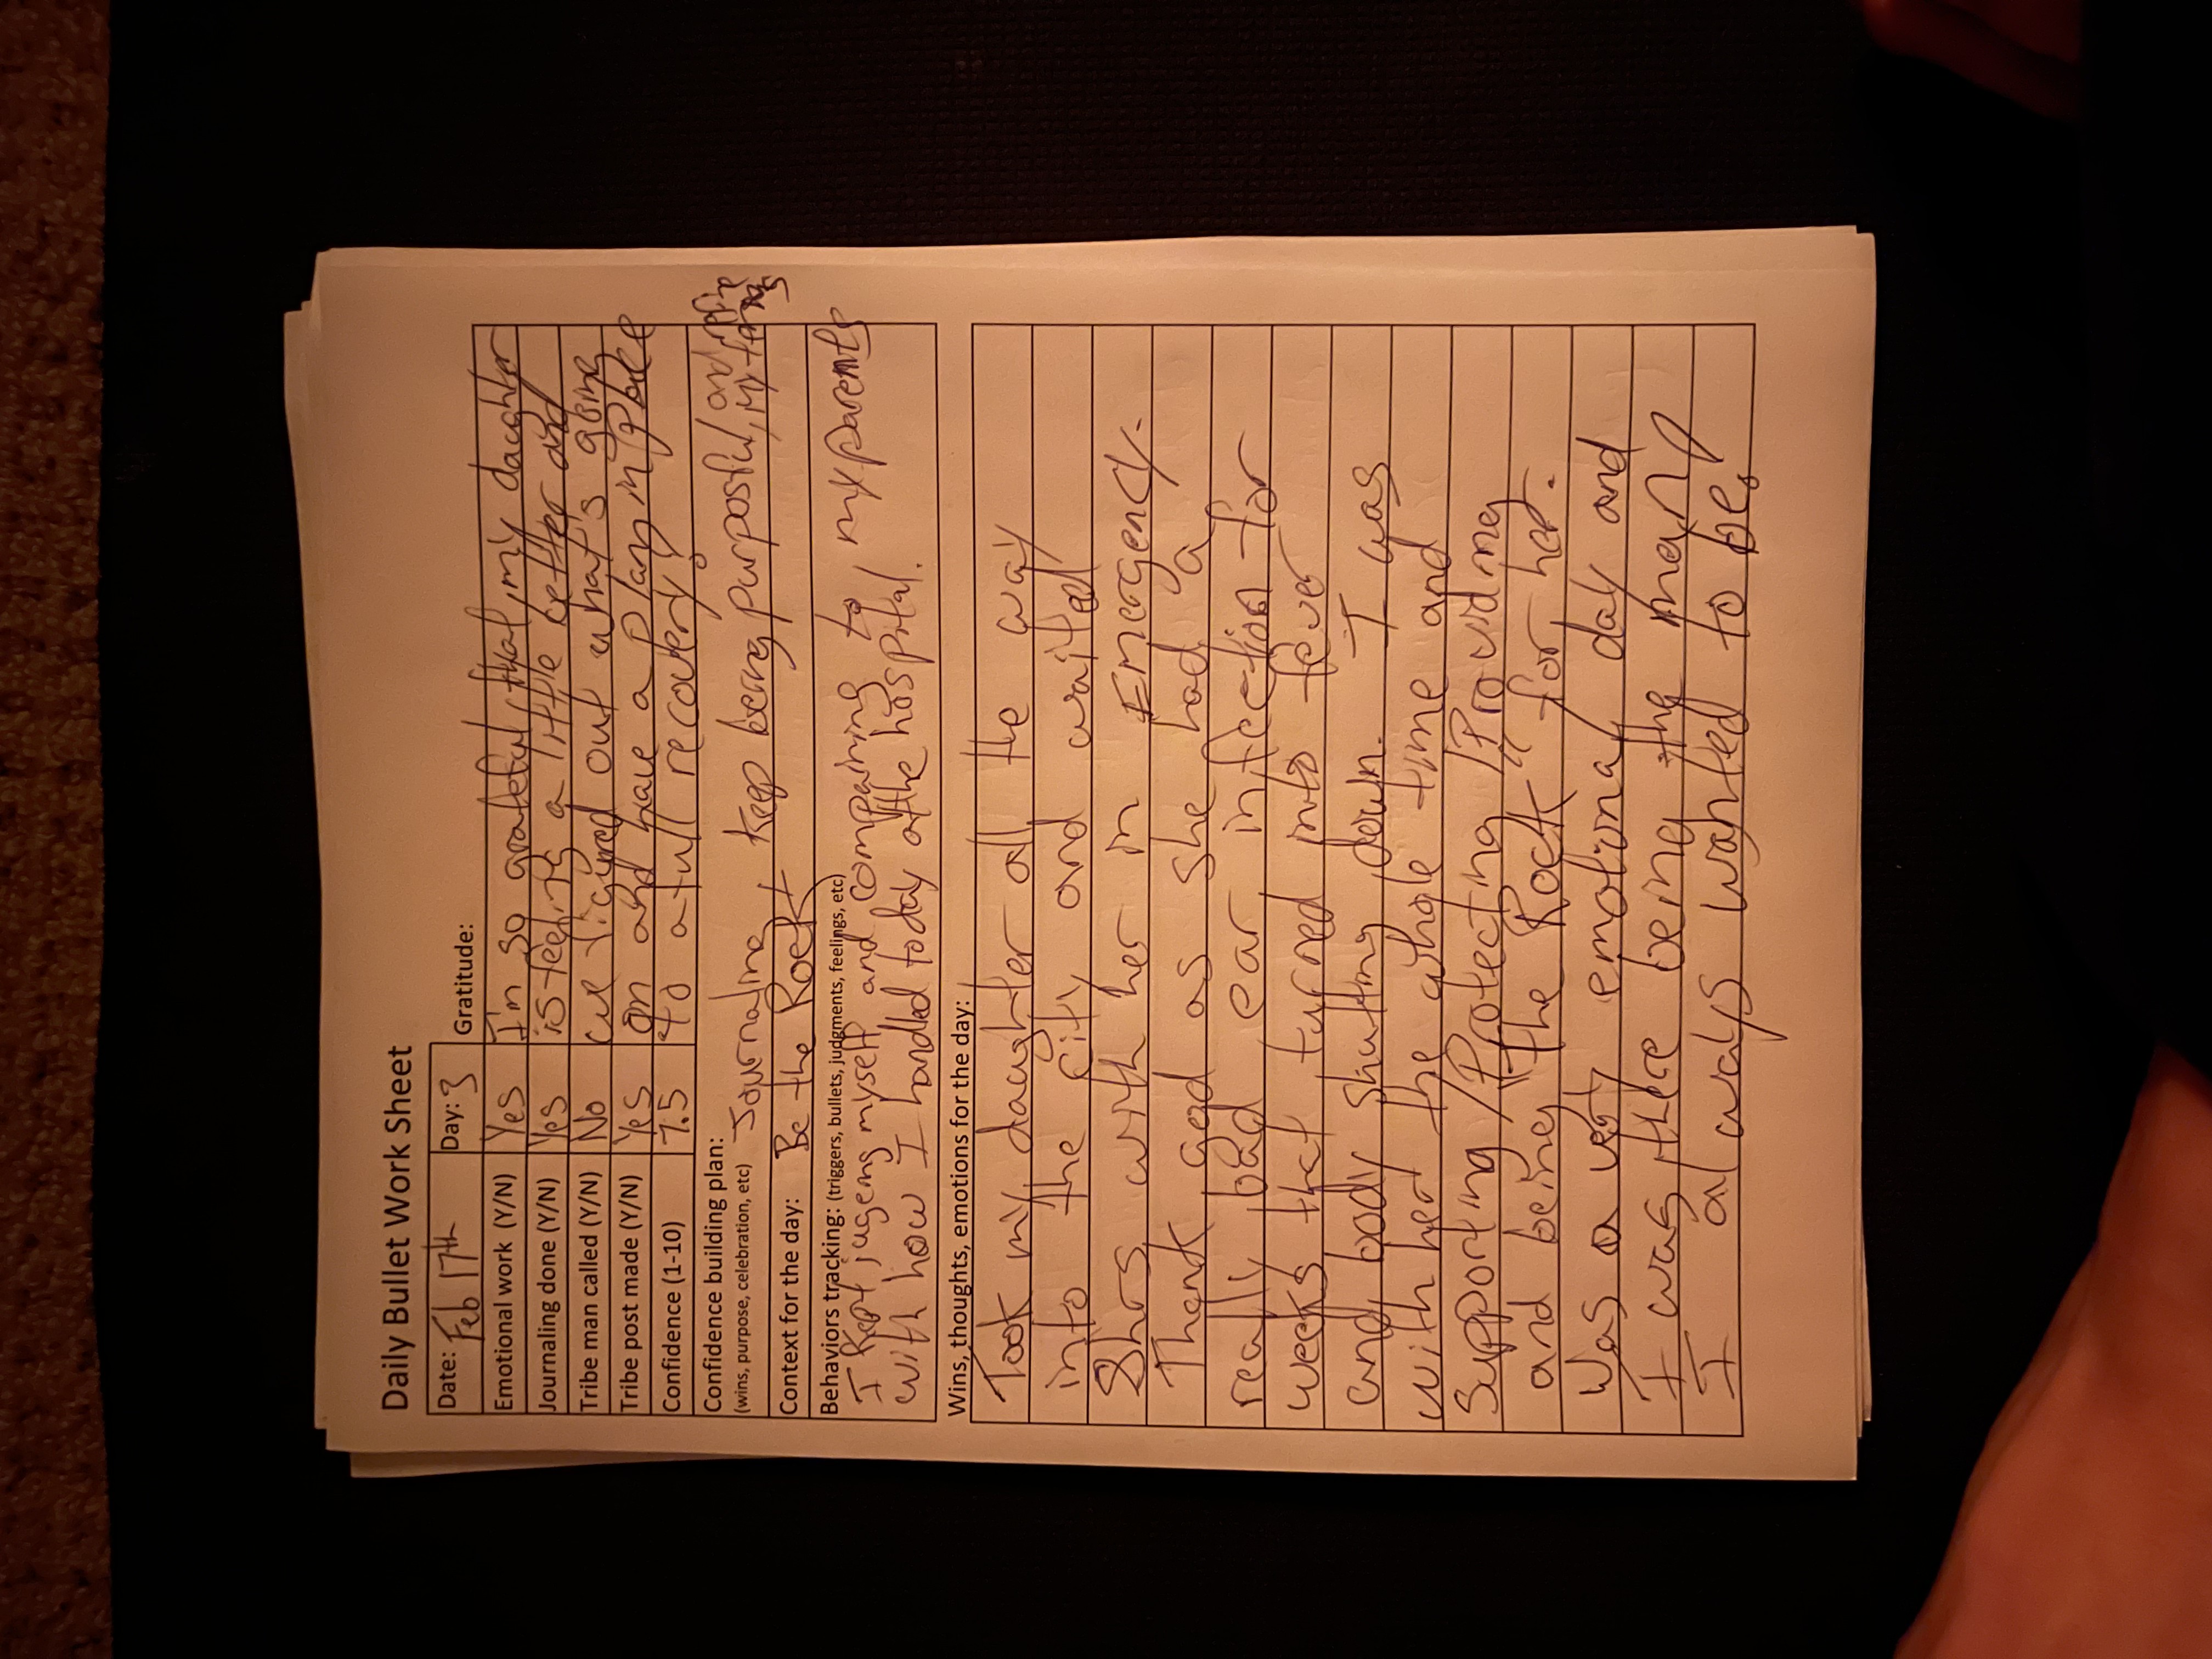 Daily Bullet Work Sheet
Date: Feb 17th Day: 3 Gratitude:
Emotional work (Y/N) Yes I'm so grateful that my daughter
Journaling done (Y/N) Yes is feeling a little better and
Tribe man called (Y/N) No we figured out what's going
Tribe post made (Y/N) Yes on and have a plan in place
Confidence (1-10) 7.5 to a full recovery!
Confidence building plan: Journaling Keep being purposful, and
(wins, purpose, celebration, etc)
Context for the day: Be the Rock
Behaviors tracking: (triggers, bullets, judgments, feelings, etc)
I kept jugeing myself and compairing to my parents
with how I handled today at the hospital.
Wins, thoughts, emotions for the day:
Took my daughter all the way
into the city and waited
8hrs with her in Emergency.
Thank god as she had a
really bad ear infection for
weeks that turned into fever
and body shutting down. I was
with her the whole time and
Supporting/Protecting/Providing
and being "the Rock" for her.
Was a very emotional day and
I was there being the man
I always wanted to be.